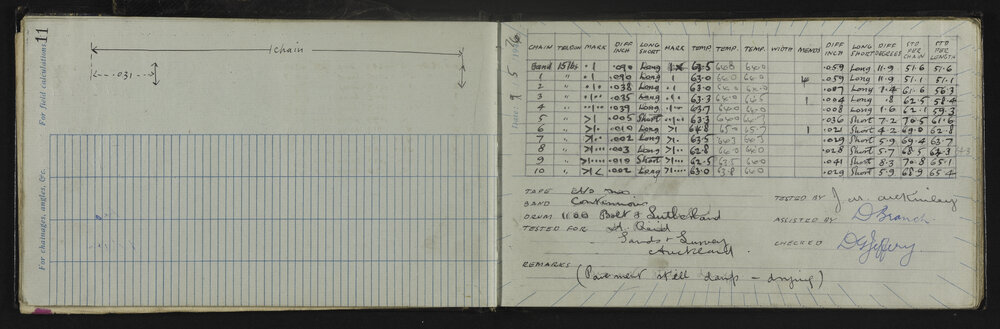 11
1 chain
.031
For field calculations
For chainages, angles, &c.
Date 9 5 1956
CHAIN TENSION MARK DIFF INCH LONG SHORT MARK TEMP. TEMP. TEMP. WIDTH MENDS DIFF INCH LONG SHORT DIFF DEGREES STD PER CHAIN STD PER LENGTH
Band 15 lbs .090 Long 63.5 64.8 64.0 .059 Long 11.9 51.6 51.6
1 " .090 Long 1 63.0 64.0 64.0 4 .059 Long 11.9 51.1 51.1
2 " .038 Long 63.0 64.0 64.0 .007 Long 1.4 61.6 56.3
3 " .035 Long 63.3 64.0 64.5 1 .004 Long .8 62.5 58.4
4 " .039 Long 63.7 64.0 64.0 .008 Long 1.6 62.1 59.3
5 " >1 .005 Short 63.3 64.0 64.7 .036 Short 7.2 70.5 61.6
6 " >1. .010 Long >1 64.8 65.0 65.7 1 .021 Short 4.2 69.0 62.8
7 " .002 Long >1. 63.5 64.3 64.3 .029 Short 5.9 69.4 63.7
8 " >1... .003 Long >1.. 62.8 64.0 64.0 .028 Short 5.7 68.5 64.3 64.3
9 " >1.... .010 Short >1... 62.5 63.5 64.0 .041 Short 8.3 70.8 65.1
10 " >1< .002 Long >1.... 63.0 63.8 64.0 .029 Short 5.9 68.9 65.4
TAPE End
BAND Continuous
DRUM 1100 Bolt & Sutherland
TESTED FOR H. Reid
Lands & Survey
Auckland
TESTED BY J. W. McKinley
ASSISTED BY D Branch
CHECKED D G Jeffery
REMARKS (Pavement still damp - drying)